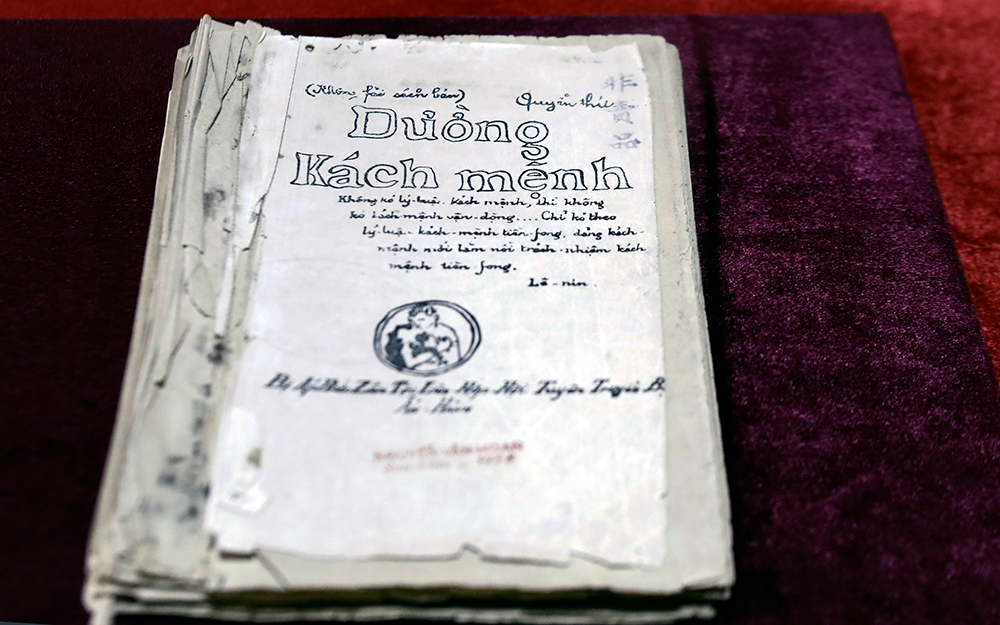 (Không fải sách bán) Quyển thứ
非賣品
Đường
Kách mệnh
Không kó lý-luận kách mệnh, thì không
kó kách mệnh vận-động.... Chỉ kó theo
lý-luận kách-mệnh tiền-fong, đảng kách-
mệnh mới làm nổi trách-nhiệm kách
mệnh tiền fong.
Lê-nin.
Bị Áp Zân Tộc Liên Hợp Hội Tuyên Truyền B.
Ấn-Hành
NGUYỄN VĂN HOAN